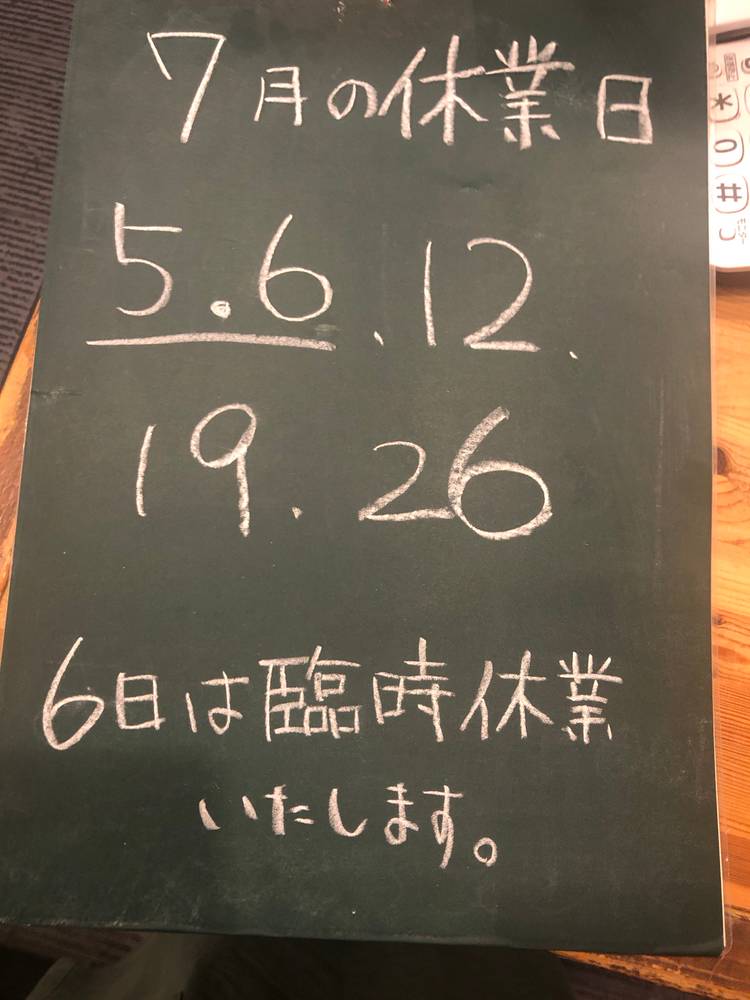 7月の休業日
5.6、12、
19.26
6日は臨時休業
いたします。
*
0
#